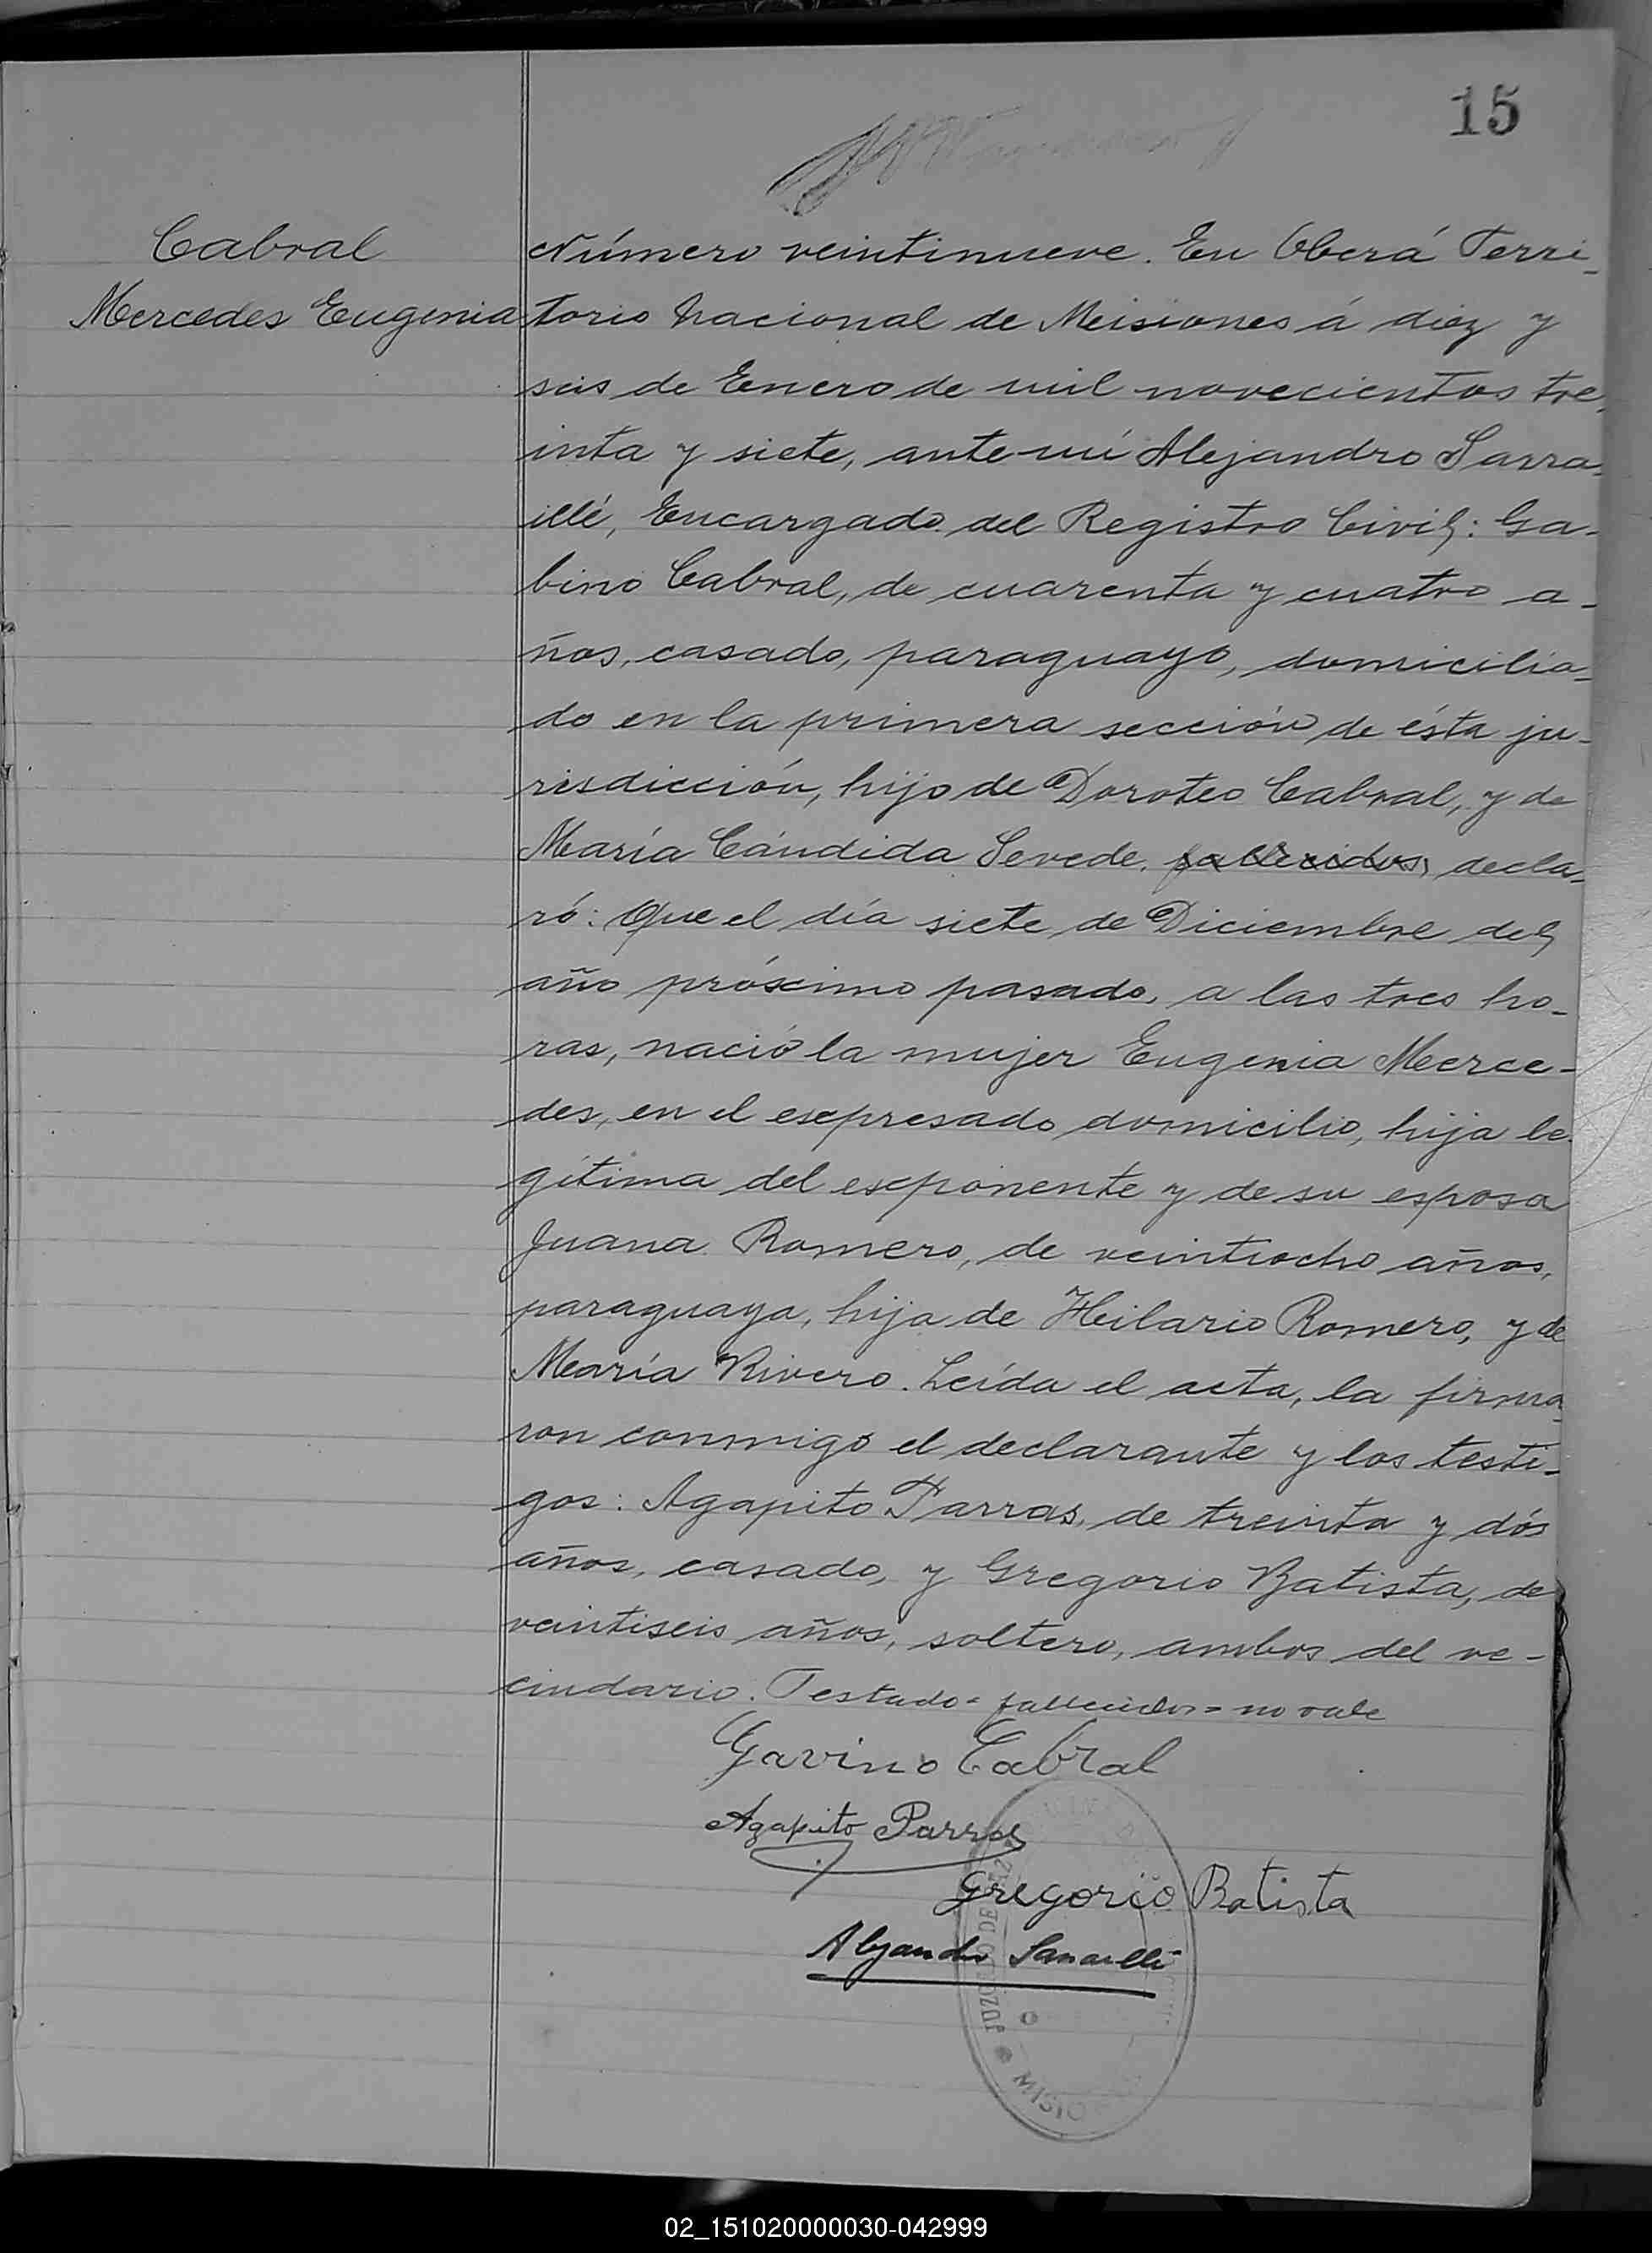 15
Cabral
Mercedes Eugenia
Número veintinueve. En Oberá Terri-
torio Nacional de Misiones á diez y
seis de Enero de mil novecientos tre-
inta y siete, ante mí Alejandro Sarra-
illé, Encargado del Registro Civil: Ga-
bino Cabral, de cuarenta y cuatro a-
ños, casado, paraguayo, domicilia-
do en la primera sección de ésta ju-
risdicción, hijo de Doroteo Cabral, y de
María Cándida Sevede, fallecidos, decla-
ró: Que el día siete de Diciembre del
año próximo pasado, a las tres ho-
ras, nació la mujer Eugenia Merce-
des, en el expresado domicilio, hija le-
gítima del exponente y de su esposa
Juana Romero, de veintiocho años,
paraguaya, hija de Hilario Romero, y de
María Rivero. Leída el acta, la firma-
ron conmigo el declarante y los testi-
gos: Agapito Parras, de treinta y dós
años, casado, y Gregorio Batista, de
veintiseis años, soltero, ambos del ve-
cindario. Testado= fallecidos= no vale
Gavino Cabral
Agapito Parras
Gregorio Batista
Alejandro Sarraillé
JUZGADO DE PAZ
02_151020000030-042999